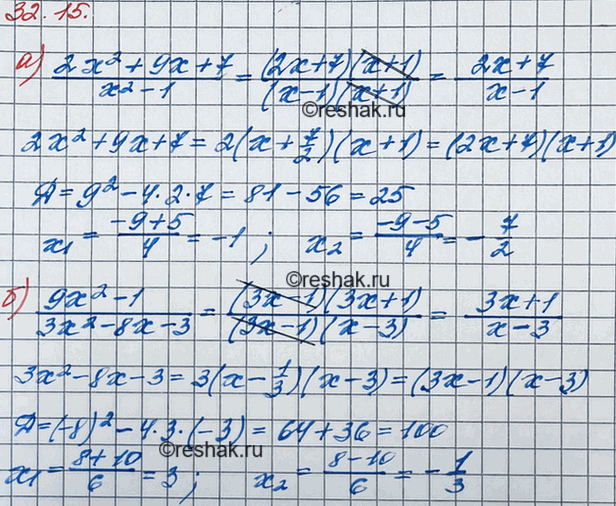 32.15.
а) (2x²+9x+7)/(x²-1) = ((2x+7)(x+1))/((x-1)(x+1)) = (2x+7)/(x-1)
©reshak.ru
2x²+9x+7=2(x+7/2)(x+1)=(2x+7)(x+1)
Д=9²-4·2·7=81-56=25
x₁=(-9+5)/4=-1; x₂=(-9-5)/4=-7/2
©reshak.ru
б) (9x²-1)/(3x²-8x-3) = ((3x-1)(3x+1))/((3x-1)(x-3)) = (3x+1)/(x-3)
3x²-8x-3=3(x-1/3)(x-3)=(3x-1)(x-3)
Д=(-8)²-4·3·(-3)=64+36=100
©reshak.ru
x₁=(8+10)/6=3; x₂=(8-10)/6=-1/3